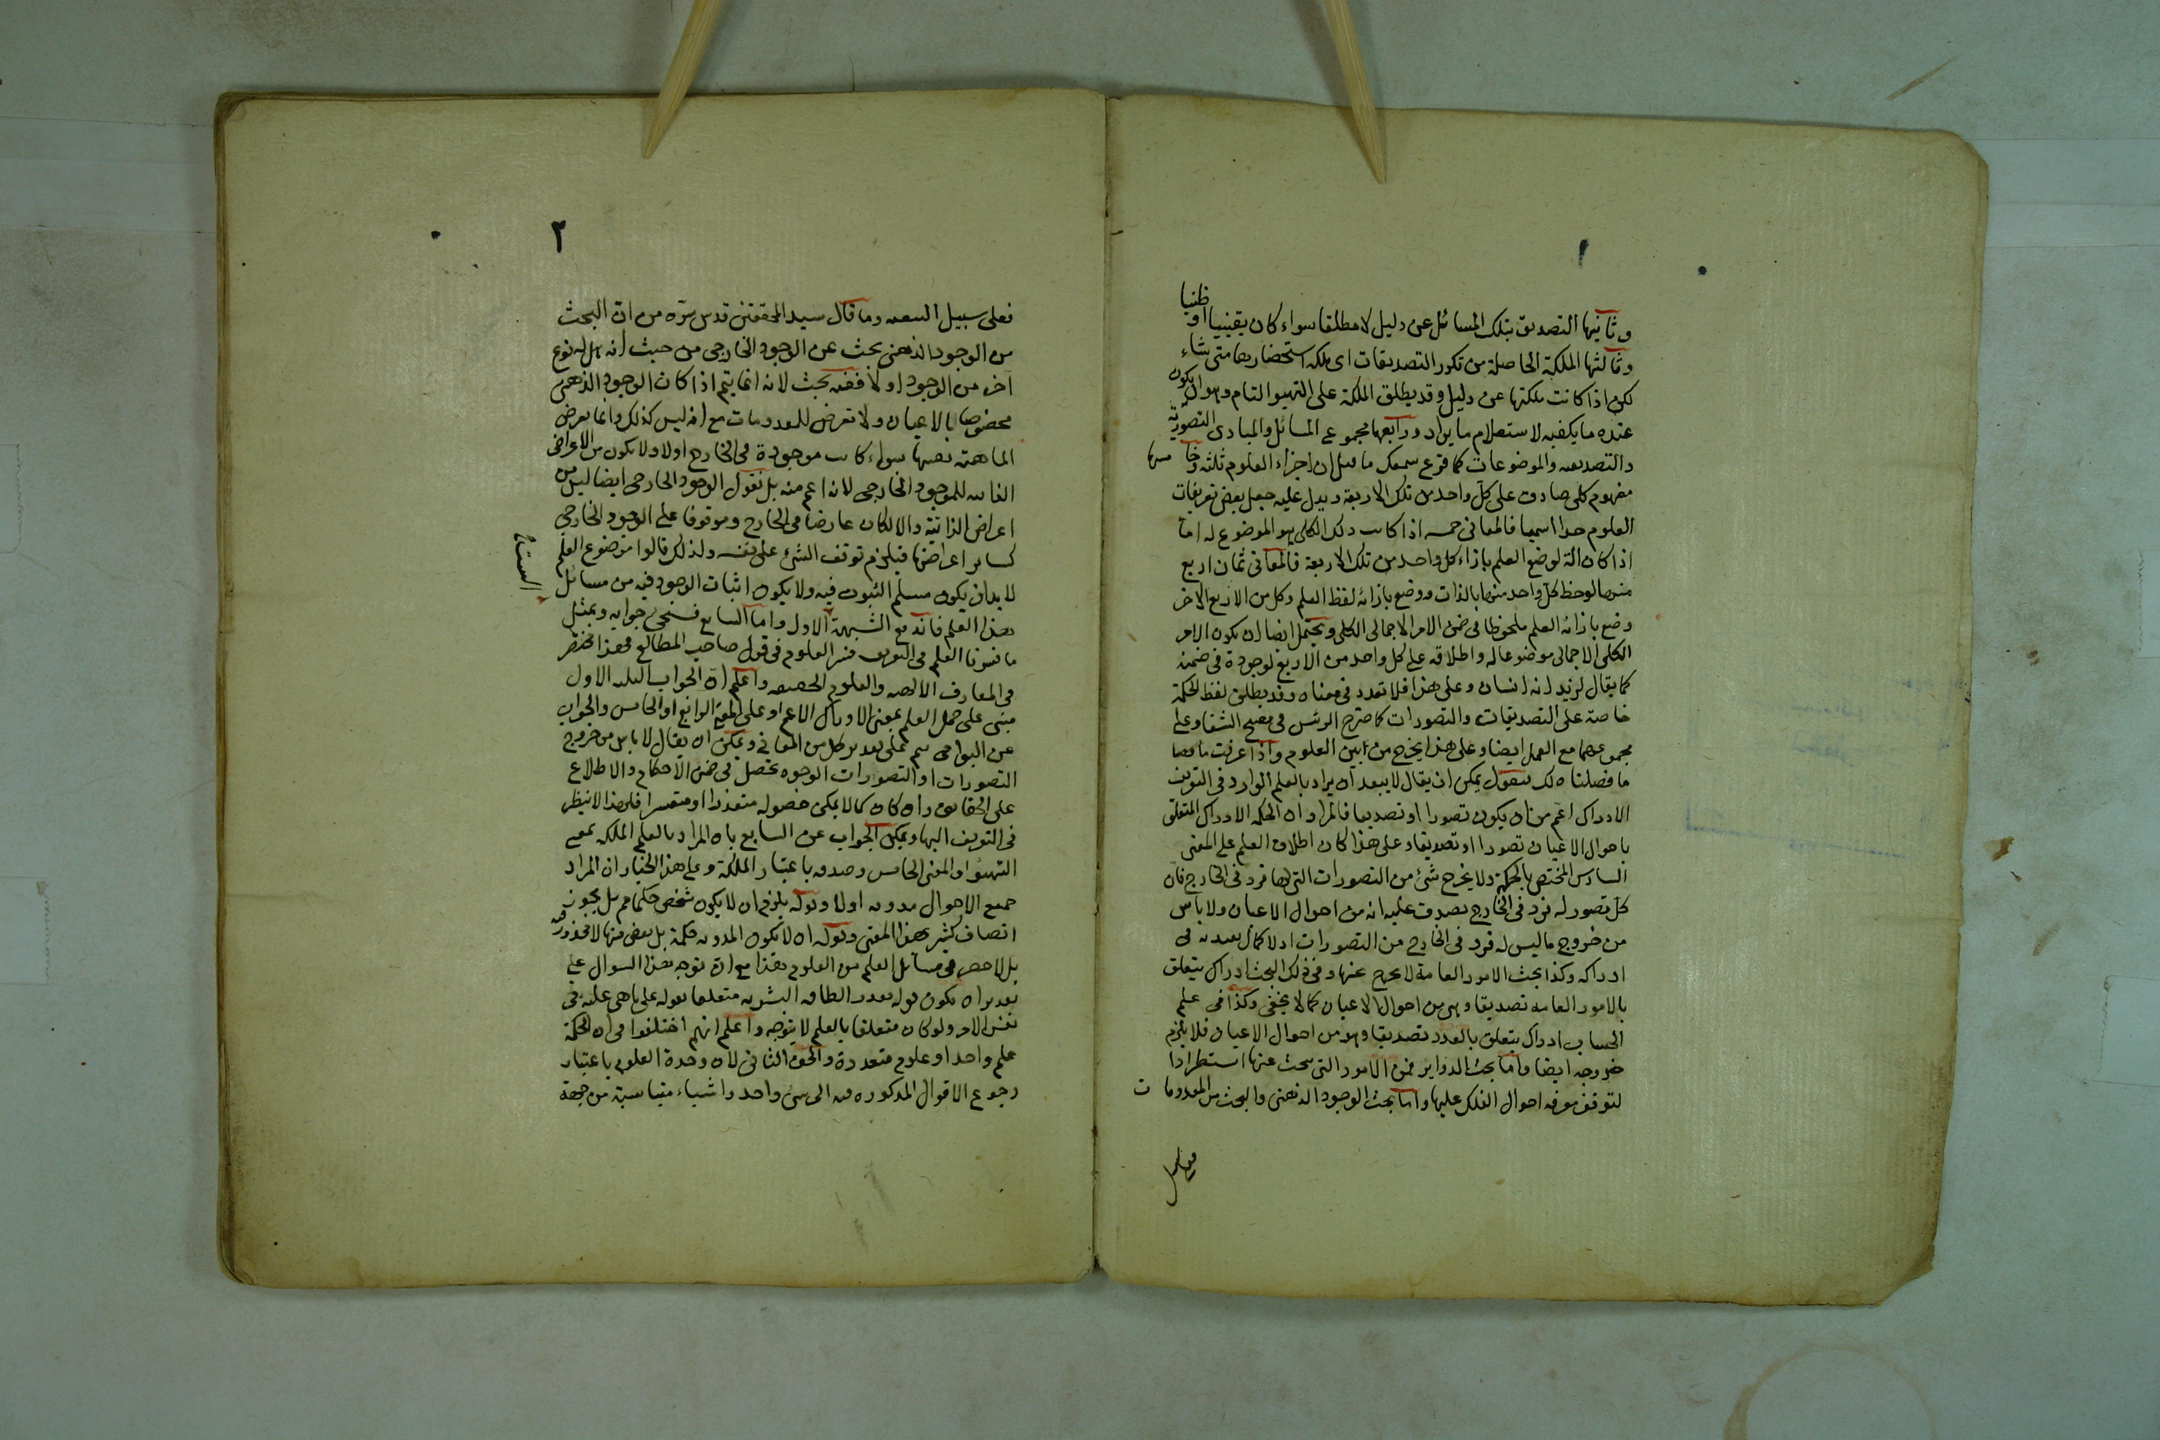 ١
وثانيها التصديق بتلك المسائل عن دليل لا مطلقا سواء كان يقينيا او ظنيا
وثالثها الملكة الحاصلة من تكرر التصديقات اى ملكة استحضارها متى شاء
لكن اذا كانت ملكتها عن دليل وقد يطلق الملكة على التهيؤ التام وهو ان يكون
عنده ما يكفيه لاستعلام ما يراد ورابعها مجموع المسائل والمبادى التصورية
والتصديقية والموضوعات كما قرع سمعك ما قيل ان اجزاء العلوم ثلثة
مفهوم كلى صادق على كل واحد من تلك الاربعة ويدل عليه جعل بعض تعريفات
العلوم حدا اسميا فالمعانى خمسة اذا كانت ذلك الكلى هو الموضوع له اما
اذا كان آلة لوضع العلم بازاء كل واحد من تلك الاربعة فالمعانى ثمان اربع
منها لوحظ كل واحد منها بالذات ووضع بازائه لفظ العلم وكل من الاربع الاخر
وضع بازائه العلم ملحوظا فى ضمن الامر الاجمالى الكلى ويحتمل ايضا ان يكون الامر
الكلى الاجمالى موضوعا له واطلاقه على كل واحد من الاربع لوجوده فى ضمنه
كما يقال لزيد انه انسان وعلى هذا فلا تعدد فى معناه وقد يطلق لفظ الحكمة
خاصة على التصديقات والتصورات كما صرح الرئيس فى الشفا وعلى
مجموعهما مع العمل ايضا وعلى هذا يخرج من بين العلوم واذا عرفت
ما فصلناه لك فنقول يمكن ان يقال لا يبعد ان يراد بالعلم الوارد فى التعريف
الادراك اعم من ان يكون تصورا او تصديقا فالمراد ان الحكمة الادراك المتعلق
باحوال الاعيان تصورا او تصديقا وعلى هذا كان اطلاق العلم على المعنى
السادس المختص بالحكمة ولا يخرج شئ من التصورات التى لها فرد فى الخارج فان
كل تصور له فرد فى الخارج يصدق عليه انه من احوال الاعيان ولا باس
من خروج ما ليس له فرد فى الخارج من التصورات اذ لا كمال يعتد به فى
ادراكه وكذا بحث الامور العامة لا يخرج عنها وفى ذلك البحث ادراك يتعلق
بالامور العامة تصديقا وهى من احوال الاعيان كما لا يخفى وكذا فى علم
الحساب ادراك يتعلق بالعدد تصديقا وهو من احوال الاعيان فلا يلزم
خروجه ايضا واما بحث الدواير فمن الامور التى يبحث عنها استطرادا
لتوقف معرفة احوال الفلك عليها واما بحث الوجود الذهنى والبحث من المعدومات
فعلى سبيل
٢
فعلى سبيل التبعية وما قال سيد المحققين قدس سره من ان البحث
من الوجود الذهنى بحث عن الوجود الخارجى من حيث انه هل له نوع
آخر من الوجود او لا ففيه بحث لانه انما يتم اذا كان الوجود الذهنى
مخصوصا بالاعيان ولا تعرض للمعدومات مع انه ليس كذلك وانما يعرض
الماهية نفسها سواء كانت موجودة فى الخارج اولا ولا يكون من الاعراض
الذاتية للموجود الخارجى لانه اعم منه بل نقول الوجود الخارجى ايضا ليس من
اعراض الذاتية والا لكان عارضا فى الخارج وموقوفا على الوجود الخارجى
كسائر اعراضها فيلزم توقف الشئ على نفسه ولذلك قالوا موضوع العلم
لا بد ان يكون مسلم الثبوت فيه ولا يكون اثبات الوجود فيه من مسائل
هذا العلم فاندفع الشبهة الاول واما السابع فستجئ جوابه وبمثل
ما فسرنا العلم فى التعريف فسر العلوم فى قول صاحب المطالع فهذا مختصر
فى المعارف الالهية والعلوم الحقيقية واعلم ان الجواب الاول
مبنى على حمل العلم بمعنى الادراك الاعم او على المعنى الرابع او الخامس والجواب
عن البواقى يتم على تقدير كل من المعانى ويمكن ان يقال لا باس من خروج
التصورات اذ التصورات الوجوه تحصل فى ضمن الاحكام والاطلاع
على الحقائق وان كان كمالا لكن حصوله متعذرا او متعسرا فلهذا لا ينظر
فى التعريف اليها ويمكن الجواب عن السابع بان المراد بالعلم الملكة بمعنى
التهيؤ او المعنى الخامس وصدقه باعتبار الملكة وعلى هذا الخيار ان المراد
جميع الاحوال مدونة اولا وقوله يلزم ان لا يكون شخص حكيما مم بل يجوز
اتصاف كثير بهذا المعنى وقوله ان لا يكون المدونة حكمة بل بعض منها لا محذور فيه
بل لا حصر فى مسائل العلم من العلوم هذا مع ان توجه هذا السؤال على
تقدير ان يكون قوله بقدر الطاقة البشرية متعلقا بقوله على ما هى عليه فى
نفس الامر ولو كان متعلقا بالعلم لا يتوجه واعلم انهم اختلفوا فى ان الحكمة
علم واحد او علوم متعددة والحق الثانى لان وحدة العلوم باعتبار
رجوع الاقوال المذكورة فيه الى شئ واحد واشياء متناسبة من جهة